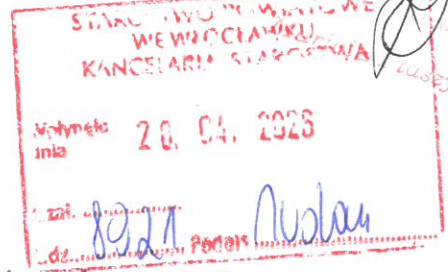 STAROSTWO POWIATOWE
WE WŁOCŁAWKU
KANCELARIA STAROSTWA
Wpłynęło
dnia 20. 04. 2026
zał.
8921 Podpis